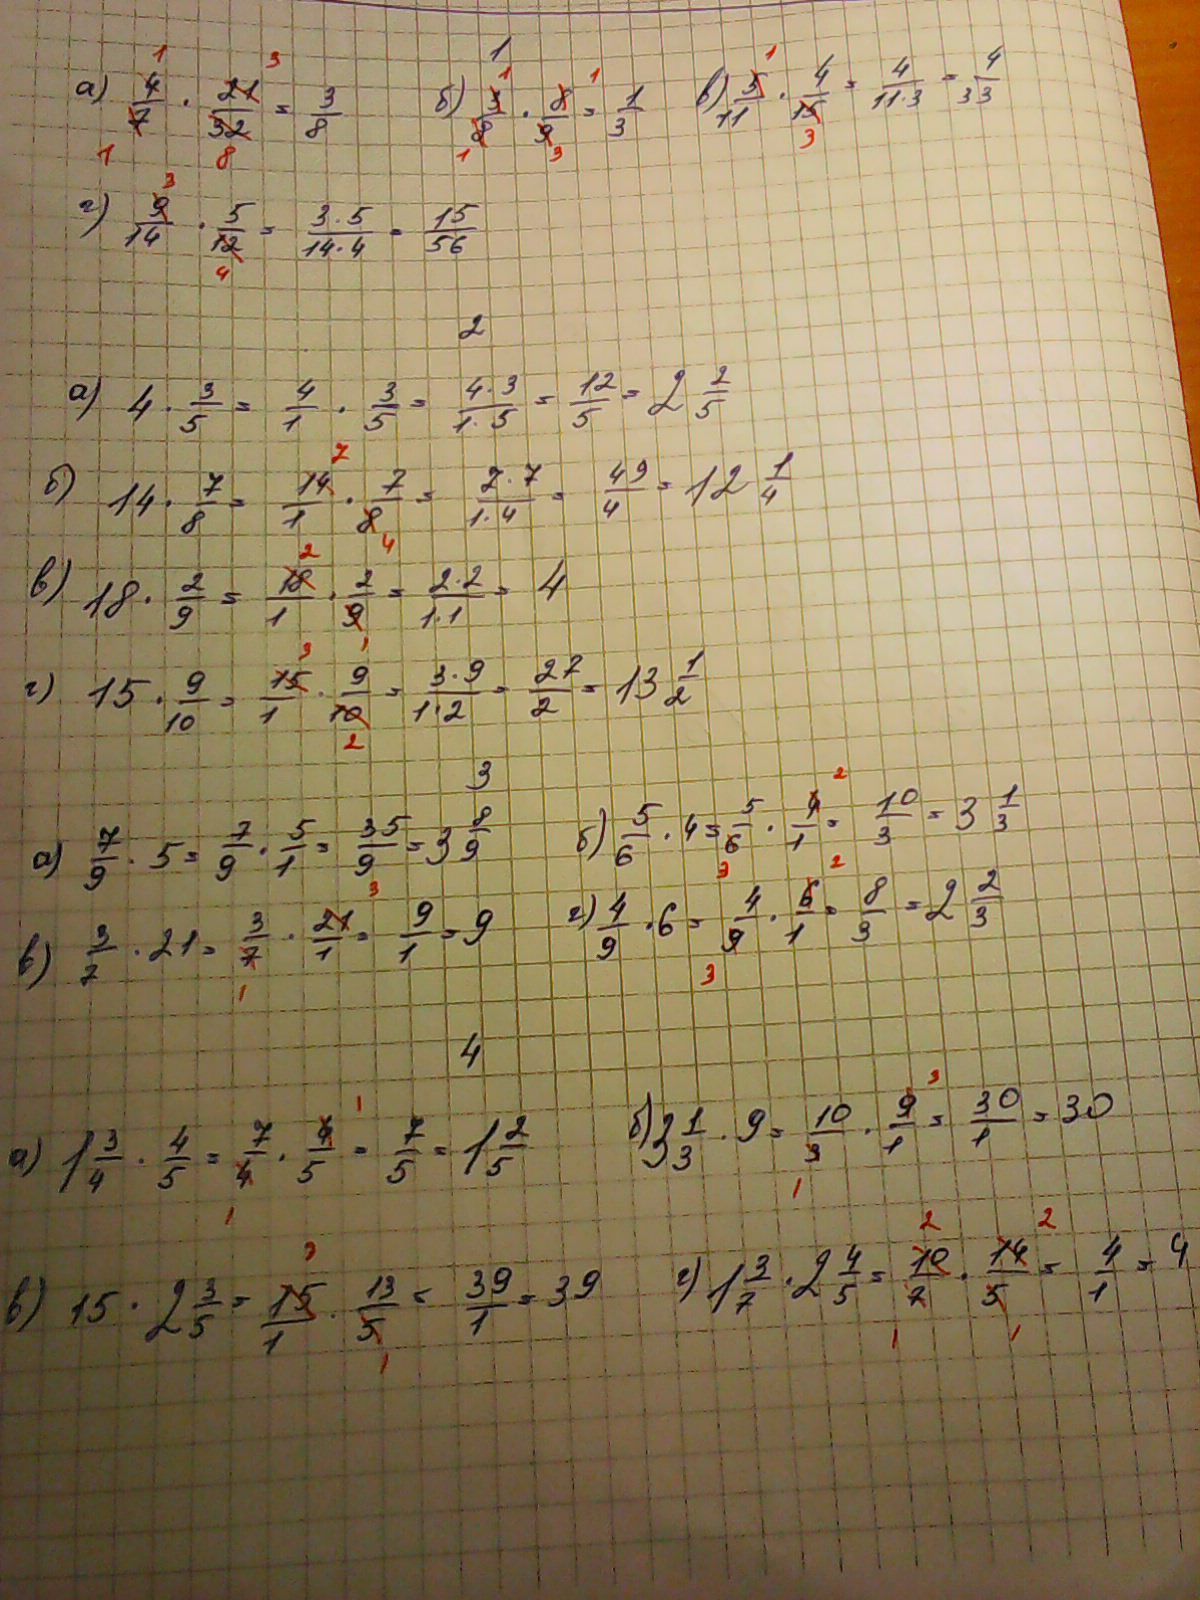 1
а) 4/7 · 21/32 = 3/8 б) 3/8 · 8/9 = 1/3 в) 5/11 · 4/15 = 4/11·3 = 4/33
г) 9/14 · 5/12 = 3·5/14·4 = 15/56
2
а) 4 · 3/5 = 4/1 · 3/5 = 4·3/1·5 = 12/5 = 2 2/5
б) 14 · 7/8 = 14/1 · 7/8 = 7·7/1·4 = 49/4 = 12 1/4
в) 18 · 2/9 = 18/1 · 2/9 = 2·2/1·1 = 4
г) 15 · 9/10 = 15/1 · 9/10 = 3·9/1·2 = 27/2 = 13 1/2
3
а) 7/9 · 5 = 7/9 · 5/1 = 35/9 = 3 8/9 б) 5/6 · 4 = 5/6 · 4/1 = 10/3 = 3 1/3
в) 3/7 · 21 = 3/7 · 21/1 = 9/1 = 9 г) 4/9 · 6 = 4/9 · 6/1 = 8/3 = 2 2/3
4
а) 1 3/4 · 4/5 = 7/4 · 4/5 = 7/5 = 1 2/5 б) 3 1/3 · 9 = 10/3 · 9/1 = 30/1 = 30
в) 15 · 2 3/5 = 15/1 · 13/5 = 39/1 = 39 г) 1 3/7 · 2 4/5 = 10/7 · 14/5 = 4/1 = 4